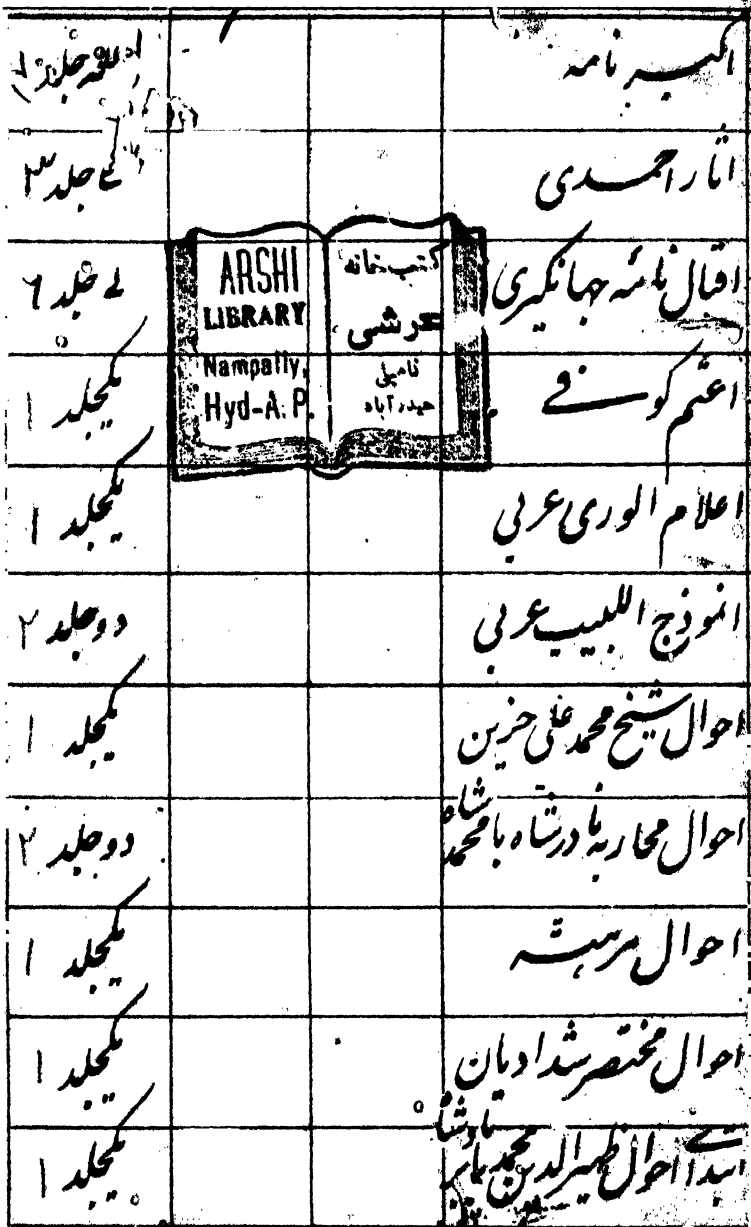 اکبر نامہ جلد
اثار احمدی جلد ۳
اقبال نامہ جہانگیری جلد ۶
ARSHI
LIBRARY
Nampally,
Hyd-A.P.
کتب خانہ
عرشی
نامپلی
حیدرآباد
اعثم کوفے یکجلد ۱
اعلام الوری عربی یکجلد ۱
انموذج اللبیب عربی دو جلد ۲
احوال شیخ محمد علی حزین یکجلد ۱
احوال محاربہ نادر شاہ با محمد شاہ دو جلد ۲
احوال مرہٹہ یکجلد ۱
احوال مختصر شدادیان یکجلد ۱
ابتداے احوال ظہیر الدین محمد بابر بادشاہ یکجلد ۱